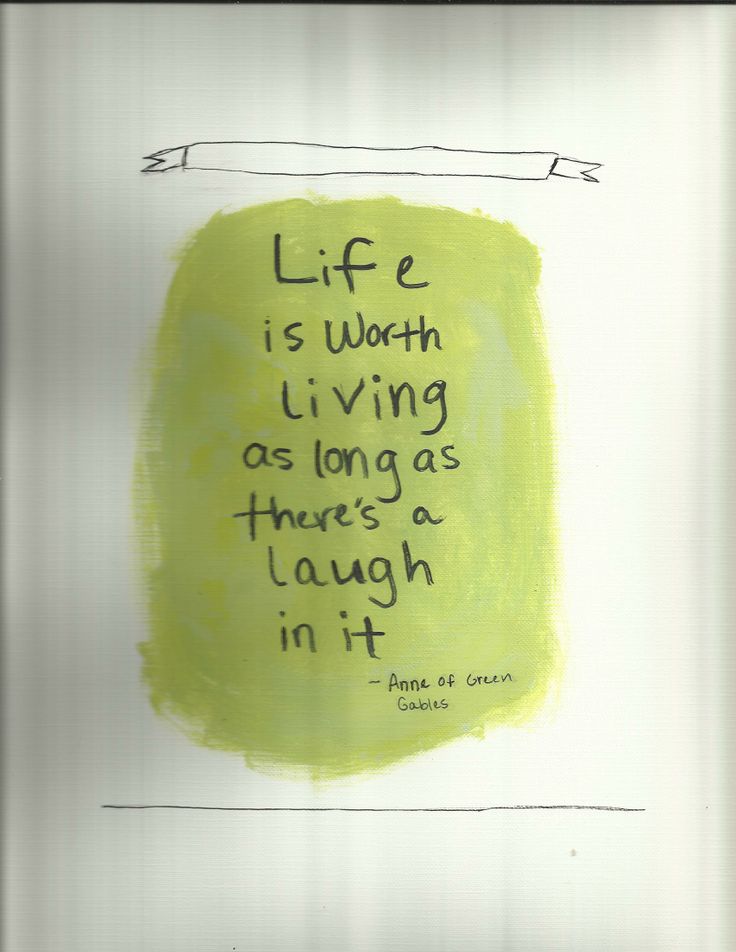 Life
is worth
living
as long as
there's a
laugh
in it
~ Anne of Green
Gables